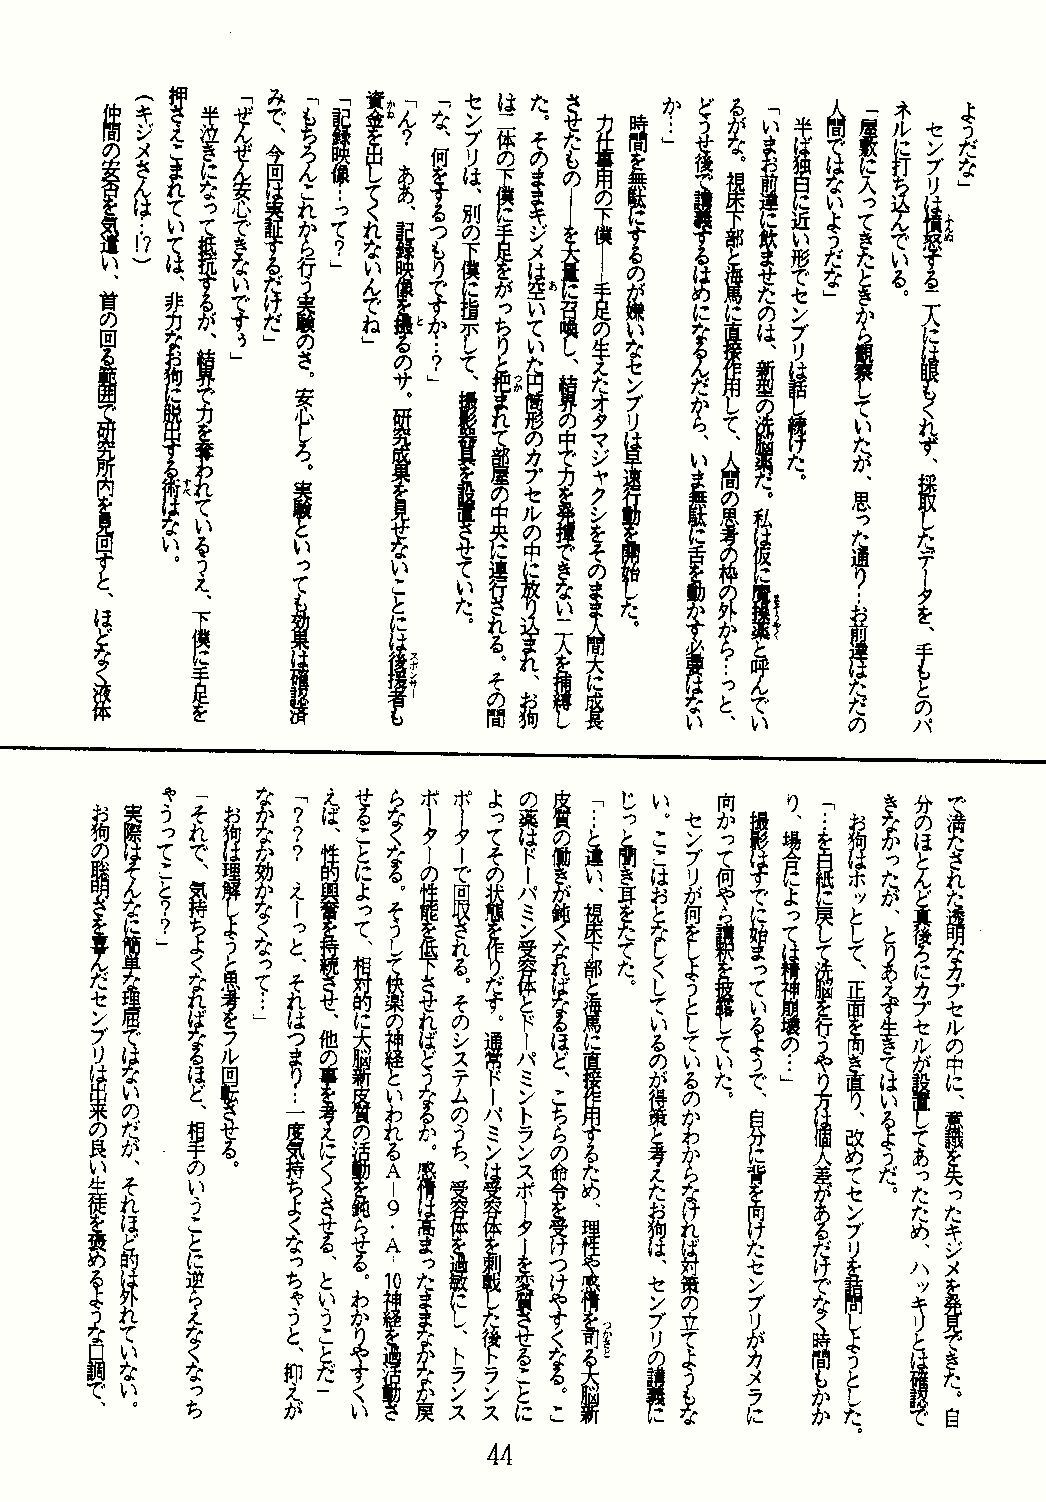 ようだな」
　センブリは憤怒する二人には眼もくれず、採取したデータを、手もとのパ
ネルに打ち込んでいる。
「屋敷に入ってきたときから観察していたが、思った通り…お前達はただの
人間ではないようだな」
　半ば独白に近い形でセンブリは話し続けた。
「いまお前達に飲ませたのは、新型の洗脳薬だ。私は仮に魔操薬と呼んでい
るがな。視床下部と海馬に直接作用して、人間の思考の枠の外から…っと、
どうせ後で講義するはめになるんだから、いま無駄に舌を動かす必要はない
か…」
　時間を無駄にするのが嫌いなセンブリは早速行動を開始した。
　力仕事用の下僕――手足の生えたオタマジャクシをそのまま人間大に成長
させたもの――を大量に召喚し、結界の中で力を発揮できない二人を捕縛し
た。そのままキジメは空いていた円筒形のカプセルの中に放り込まれ、お狗
は二体の下僕に手足をがっちりと把まれて部屋の中央に連行される。その間
センブリは、別の下僕に指示して、撮影器具を設置させていた。
「な、何をするつもりですか…？」
「ん？　ああ、記録映像を撮るのサ。研究成果を見せないことには後援者も
資金を出してくれないんでね」
「記録映像…って？」
「もちろんこれから行う実験のさ。安心しろ。実験といっても効果は確認済
みで、今回は実証するだけだ」
「ぜんぜん安心できないですぅ」
　半泣きになって抵抗するが、結界で力を奪われているうえ、下僕に手足を
押さえこまれていては、非力なお狗に脱出する術はない。
（キジメさんは…!?）
　仲間の安否を気遣い、首の回る範囲で研究所内を見回すと、ほどなく液体
で満たされた透明なカプセルの中に、意識を失ったキジメを発見できた。自
分のほとんど真後ろにカプセルが設置してあったため、ハッキリとは確認で
きなかったが、とりあえず生きてはいるようだ。
　お狗はホッとして、正面を向き直り、改めてセンブリを詰問しようとした。
「…を白紙に戻して洗脳を行うやり方は個人差があるだけでなく時間もかか
り、場合によっては精神崩壊の…」
　撮影はすでに始まっているようで、自分に背を向けたセンブリがカメラに
向かって何やら講釈を披露していた。
　センブリが何をしようとしているのかわからなければ対策の立てようもな
い。ここはおとなしくしているのが得策と考えたお狗は、センブリの講義に
じっと聞き耳をたてた。
「…と違い、視床下部と海馬に直接作用するため、理性や感情を司る大脳新
皮質の働きが鈍くなればなるほど、こちらの命令を受けつけやすくなる。こ
の薬はドーパミン受容体とドーパミントランスポーターを変質させることに
よってその状態を作りだす。通常ドーパミンは受容体を刺戟した後トランス
ポーターで回収される。そのシステムのうち、受容体を過敏にし、トランス
ポーターの性能を低下させればどうなるか。感情は高まったままなかなか戻
らなくなる。そうして快楽の神経といわれるＡ－９・Ａ－10神経を過活動さ
せることによって、相対的に大脳新皮質の活動を鈍らせる。わかりやすくい
えば、性的興奮を持続させ、他の事を考えにくくさせる、ということだ」
「？？？　えーっと、それはつまり…一度気持ちよくなっちゃうと、抑えが
なかなか効かなくなって…」
　お狗は理解しようと思考をフル回転させる。
「それで、気持ちよくなればなるほど、相手のいうことに逆らえなくなっち
ゃうってこと？？」
　実際はそんなに簡単な理屈ではないのだが、それほど的は外れていない。
　お狗の聡明さを喜んだセンブリは出来の良い生徒を褒めるような口調で、
44